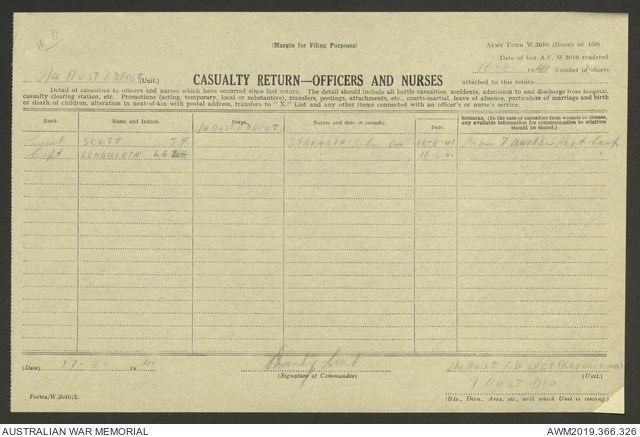 (Margin for Filing Purposes)
ARMY FORM W.3010 (BOOKS OF 100).
Date of last A.F. W.3010 rendered
2/4 AUST (Unit.)
Number of sheets
CASUALTY RETURN—OFFICERS AND NURSES
attached to this return
Detail of casualties to officers and nurses which have occurred since last return. The detail should include all battle casualties, accidents, admission to and discharge from hospital, casualty clearing station, etc. Promotions (acting, temporary, local or substantive), transfers, postings, attachments, etc., courts-martial, leave of absence, particulars of marriage and birth or death of children, alteration in next-of-kin with postal address, transfers to "X" List and any other items connected with an officer's or nurse's service.
Rank.
Name and Initials.
Corps.
Nature and date of casualty.
Date.
Remarks. (In the case of casualties from wounds or disease, any available information for communication to relatives should be stated.)
SCOTT J F
STRENGTH
From
Capt LONGWORTH
(Date)
(Signature of Commander)
2/4 AUST
(Unit.)
7 AUST DIV
(Bde., Divn., Area, etc., with which Unit is serving.)
Forms/W.3010/2.
AUSTRALIAN WAR MEMORIAL
AWM2019.366.326